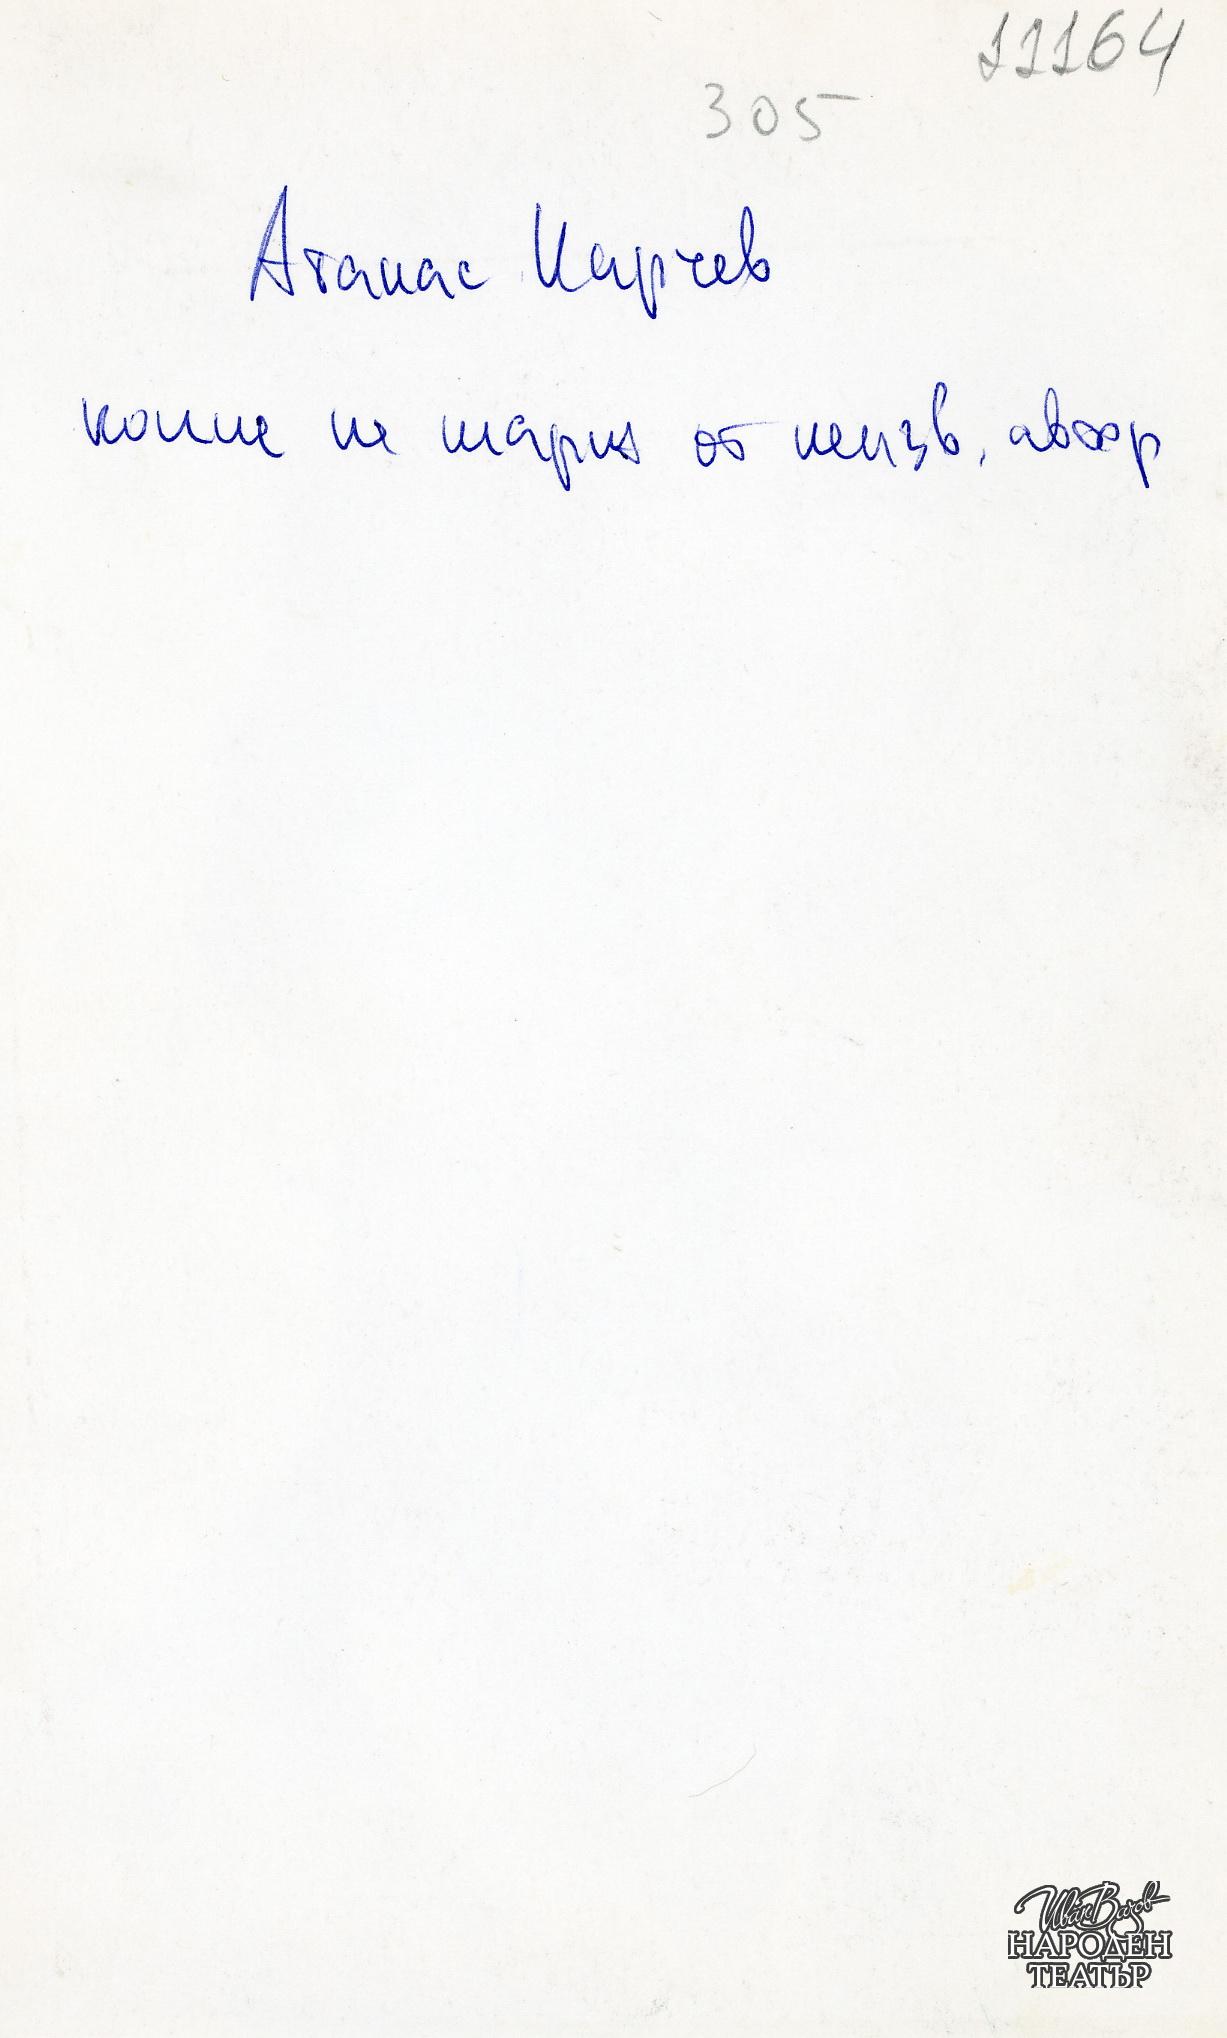 11164
305
Атанас Кирчев
копие на шарж от неизв. автор
Иван Вазов
НАРОДЕН
ТЕАТЪР